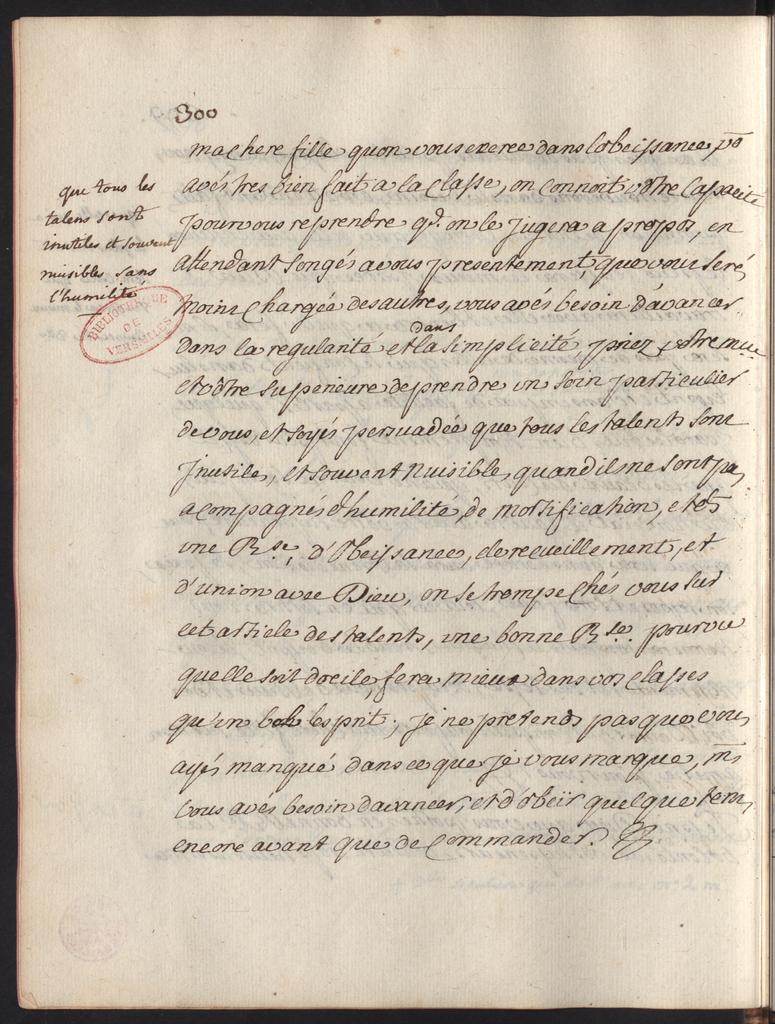 300
ma chere fille quon vous exerce dans lobeissance, vo
avés tres bien fait a la Classe, on connoit vôtre Capacité
pour vous reprendre qd. on le jugera a propos, en
attendant songés a vous presentement, que vous seré
moins chargée des autres, vous avés besoin d'avancer
dans la regularité et dans la simplicité, priez vôtre
et vôtre superieure de prendre un soin particulier
de vous, et soyés persuadée que tous les talents sont
jnutiles, et souvent nuisibles, quand ils ne sont pas
acompagnés d'humilité, de mortification, et
une Rse. d'obeissance, de recueillement, et
d'union avec Dieu, on se trompe chés vous sur
cet article des talents, une bonne Rse. pourvu
quelle soit docile, fera mieux dans vos classes
qu'un bel esprit; je ne pretends pas que vous
ayés manqué dans ce que je vous marque, ms
vous avés besoin davancer, et d'obeïr quelque tems
encore avant que de commander.
que tous les
talens sont
inutiles et souvent
nuisibles sans
l'humilité
BIBLIOTHEQUE
DE
VERSAILLES